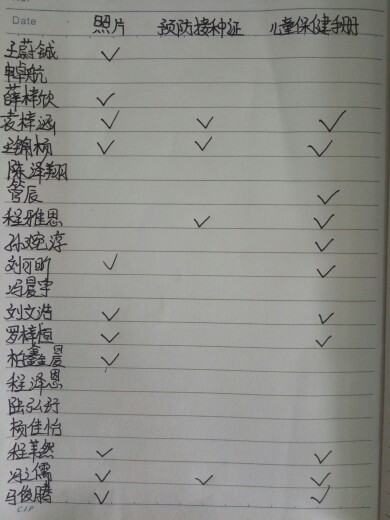 Date 照片 预防接种证 儿童保健手册
王蔚铖 ✓
卓航
薛梓欣 ✓
袁梓涵 ✓ ✓ ✓
王锦杨 ✓ ✓ ✓
陈泽翔
管辰 ✓
程雅恩 ✓ ✓
孙婉淳 ✓
刘可昕 ✓ ✓
冯晨宇
刘文浩 ✓ ✓
罗梓恒 ✓ ✓
柏鑫晨 ✓
程泽恩
陆弘纾
杨佳怡
程苇然 ✓ ✓
冯立儒 ✓ ✓ ✓
马俊腾 ✓ ✓